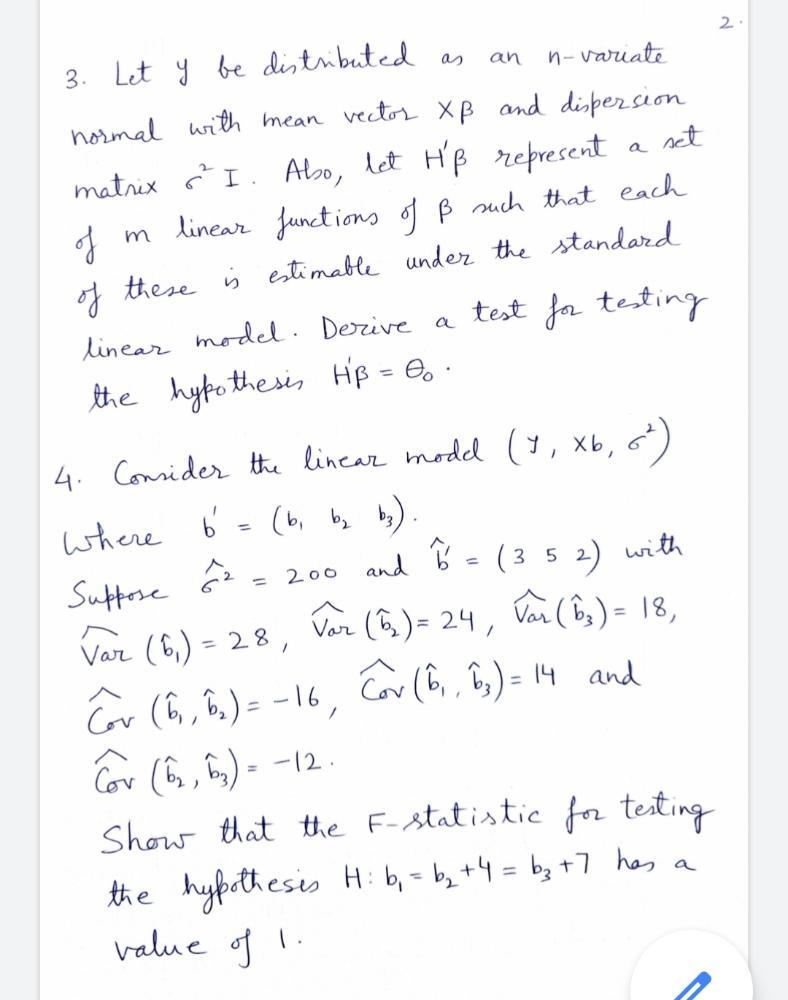 2.
3. Let y be distributed as an n-variate
normal with mean vector Xβ and dispersion
matrix σ² I. Also, let H'β represent a set
of m linear functions of β such that each
of these is estimable under the standard
linear model. Derive a test for testing
the hypothesis H'β = θ₀.
4. Consider the linear model (y, Xb, σ²)
Where b' = (b₁ b₂ b₃).
Suppose σ̂² = 200 and b̂' = (3 5 2) with
V̂ar (b̂₁) = 28, V̂ar (b̂₂) = 24, V̂ar (b̂₃) = 18,
Ĉov (b̂₁, b̂₂) = -16, Ĉov (b̂₁, b̂₃) = 14 and
Ĉov (b̂₂, b̂₃) = -12.
Show that the F-statistic for testing
the hypothesis H: b₁ = b₂ + 4 = b₃ + 7 has a
value of 1.